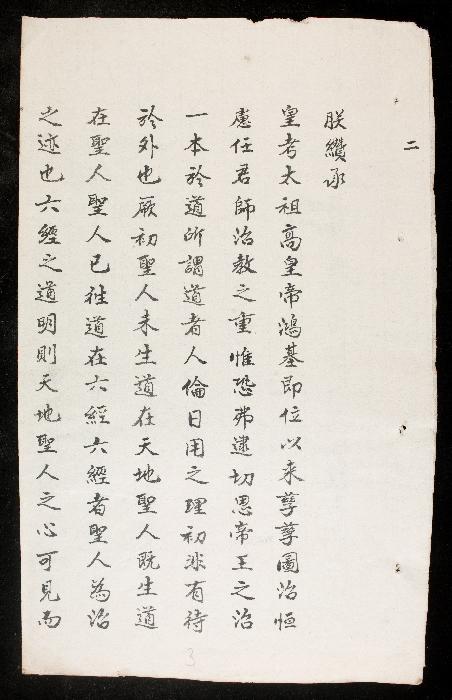 二
朕纘承
皇考太祖高皇帝鴻基即位以来孳孳圖治恒
慮任君師治教之重惟恐弗逮切思帝王之治
一本於道所謂道者人倫日用之理初非有待
於外也厥初聖人未生道在天地聖人既生道
在聖人聖人已徃道在六經六經者聖人為治
之迹也六經之道明則天地聖人之心可見而
3